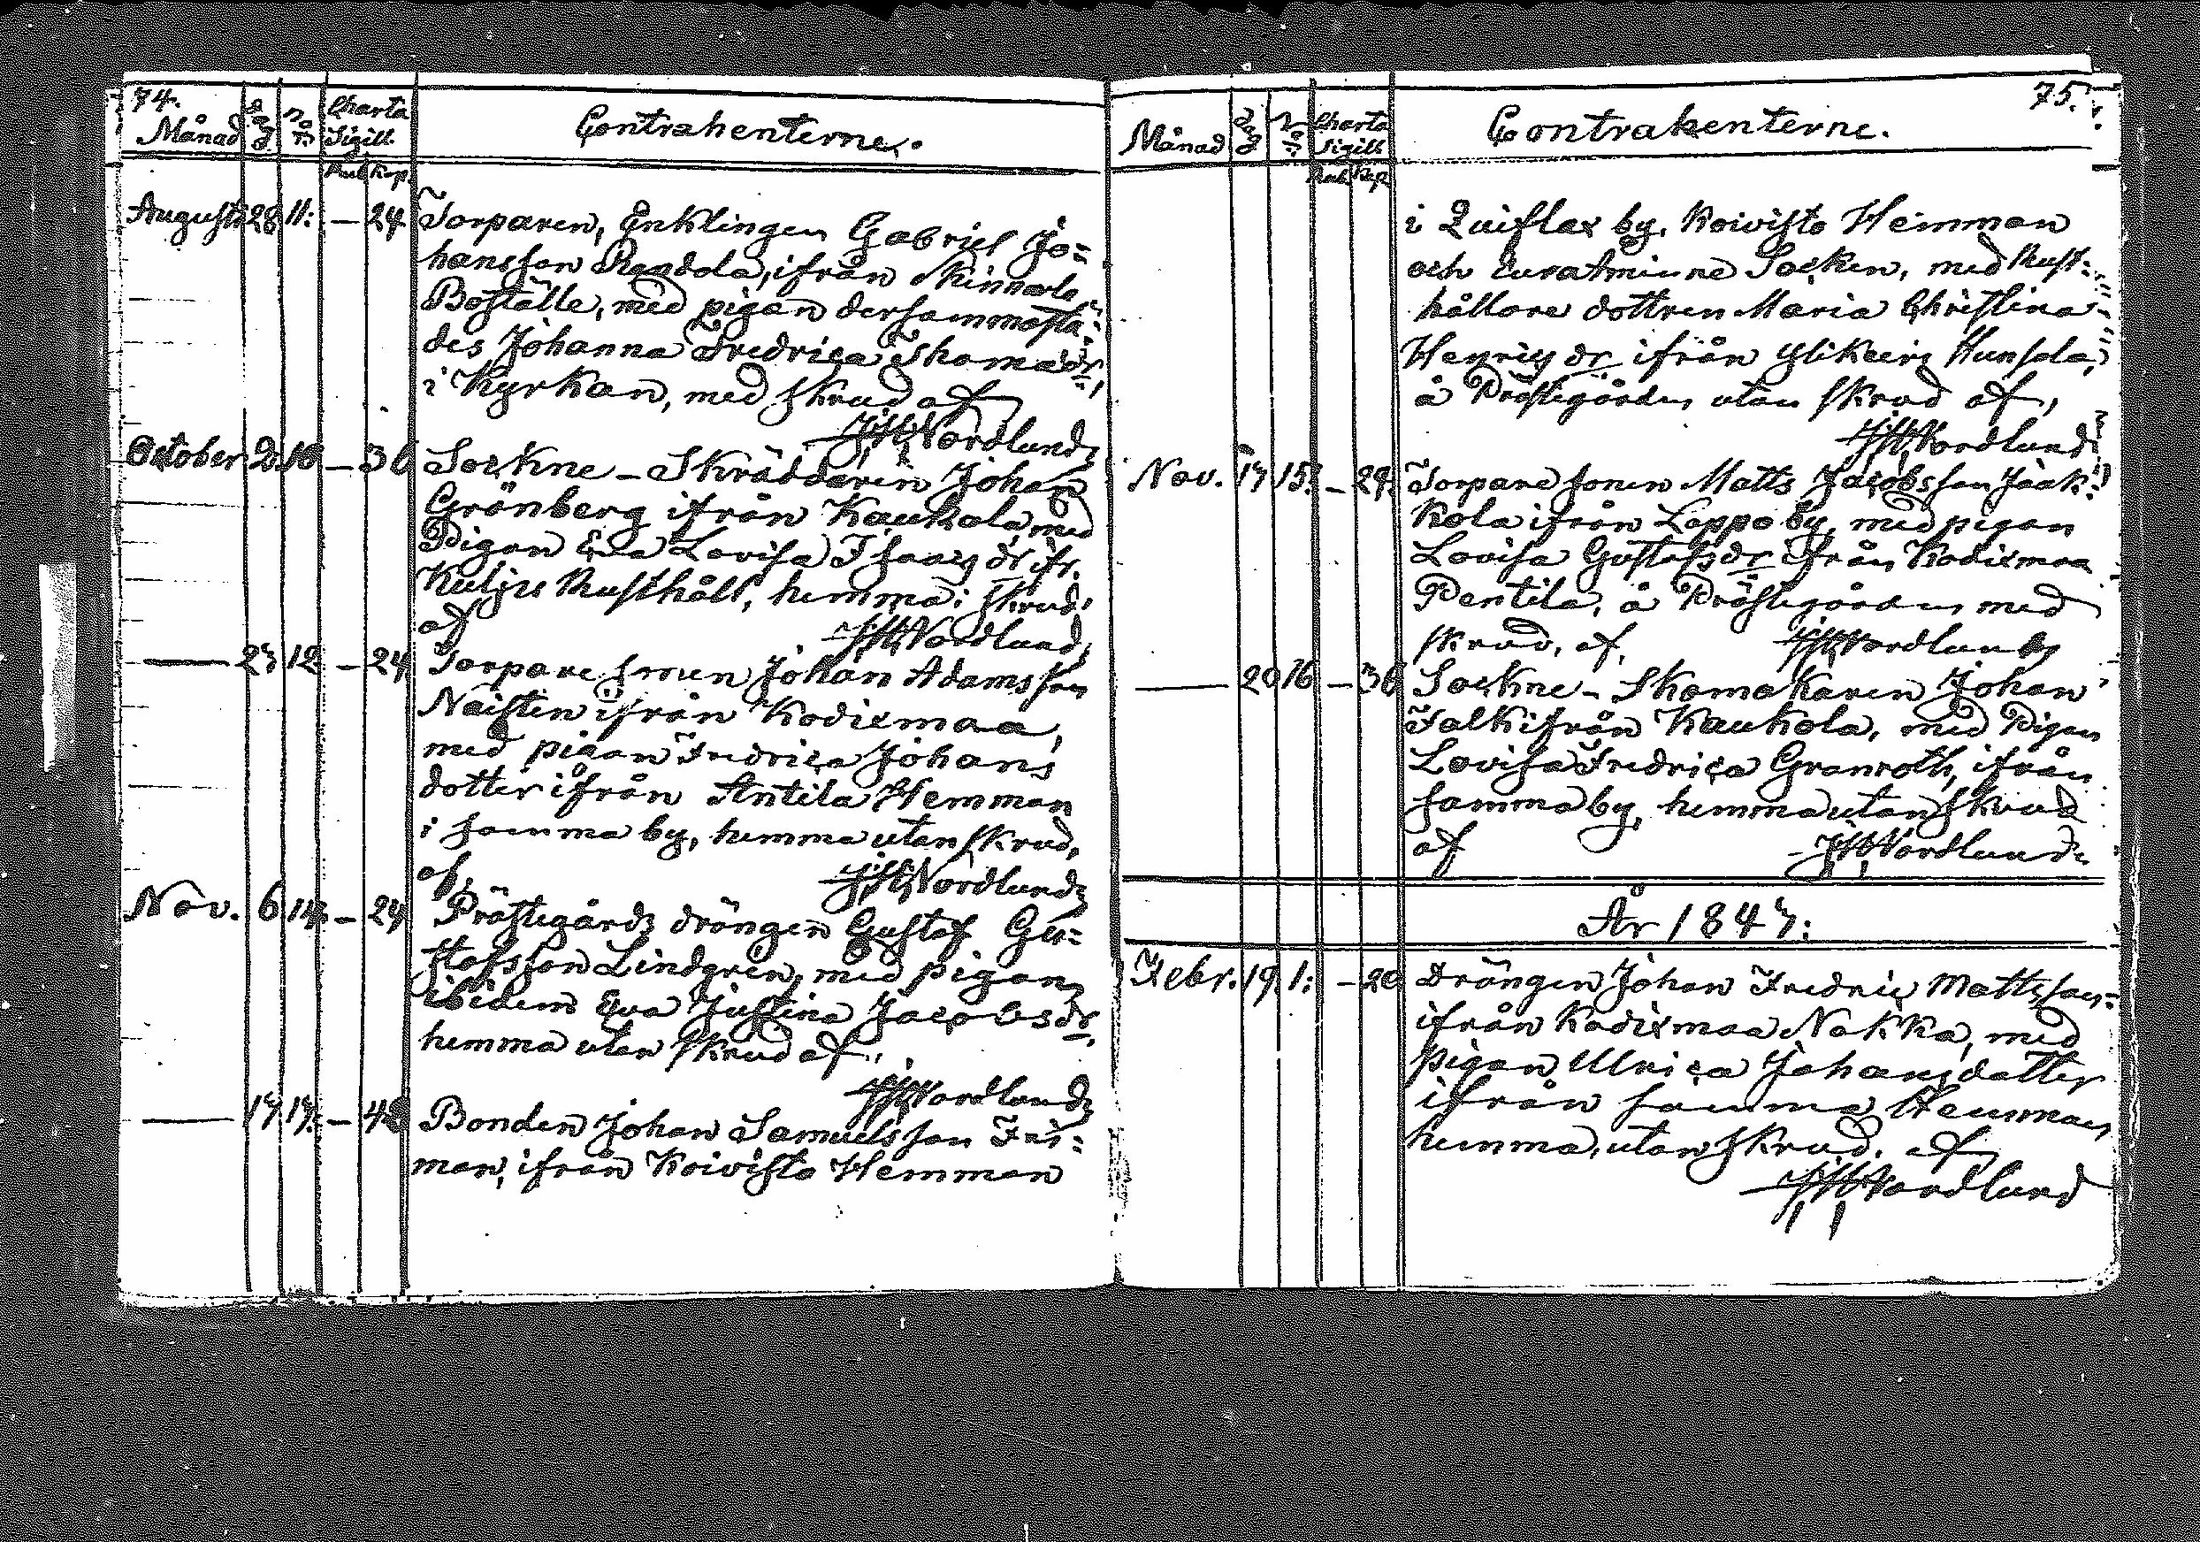 74.
Månad Dag N:o Charta Sigill. Contrahenterne.
Rub. Kop.
Augusti 28 11: — 24 Torparen, Enklingen Gabriel Jo=
hansson Randola, ifrån Skinnarla
Boställe, med pigan dersammasta:
des Johanna Fredrica Thomædr,
i Kyrkan, med skrud af
Nordlund
October 2. — 36 Sockne-Skräddaren Johan
Grönberg ifrån Kaukola, med
Pigan Eva Lovisa Isaacs dr ifr.
Kulju Rusthåll, hemma i skrud,
af Nordlund,
— 27 12 — 24 Torpare sonen Johan Adamsson
Naisten ifrån Kodixmaa,
med pigan Fredrica Johans
dotter ifrån Antila Hemman
i samma by, hemma utan skrud,
af, Nordlund
Nov. 6 — 24 Prästegårds drängen Gustaf Gu=
stafsson Lindgren, med pigan
ibidem Eva Justina Jacobsdr,
hemma utan skrud af,
Nordlund
— 17 — 48 Bonden Johan Samuelsson Fri:
man, ifrån Koivisto Hemman
75.
Månad Dag N:o Charta Sigill Contrahenterne.
Rub. Kop.
i Quiflax by, Koivisto Hemman
och Euraåminne Socken, med Rust:
hållare dottren Maria Christina
Henrics dr ifrån Hunsola,
å Prästegården utan skrud af,
Nordlund
Nov. 17 15: — 24. Torpare sonen Matts Jacobsson Jaak:
kola ifrån Lappo by, med pigan
Lovisa Gustafsdr ifrån Kodixmaa
Pentila, å Prästegården med
skrud, af, Nordlund
— 20 16 — 36 Sockne-Skomakaren Johan
Falk ifrån Kaukola, med Pigan
Lovisa Fredrica Granroth, ifrån
samma by, hemma utan skrud
af Nordlund
År 1847:
Febr. 19. 1: — 20 Drängen Johan Fredric Mattsson
ifrån Kodixmaa Nakka, med
pigan Ulrica Johansdotter
ifrån samma Hemman
hemma, utan skrud, af
Nordlund